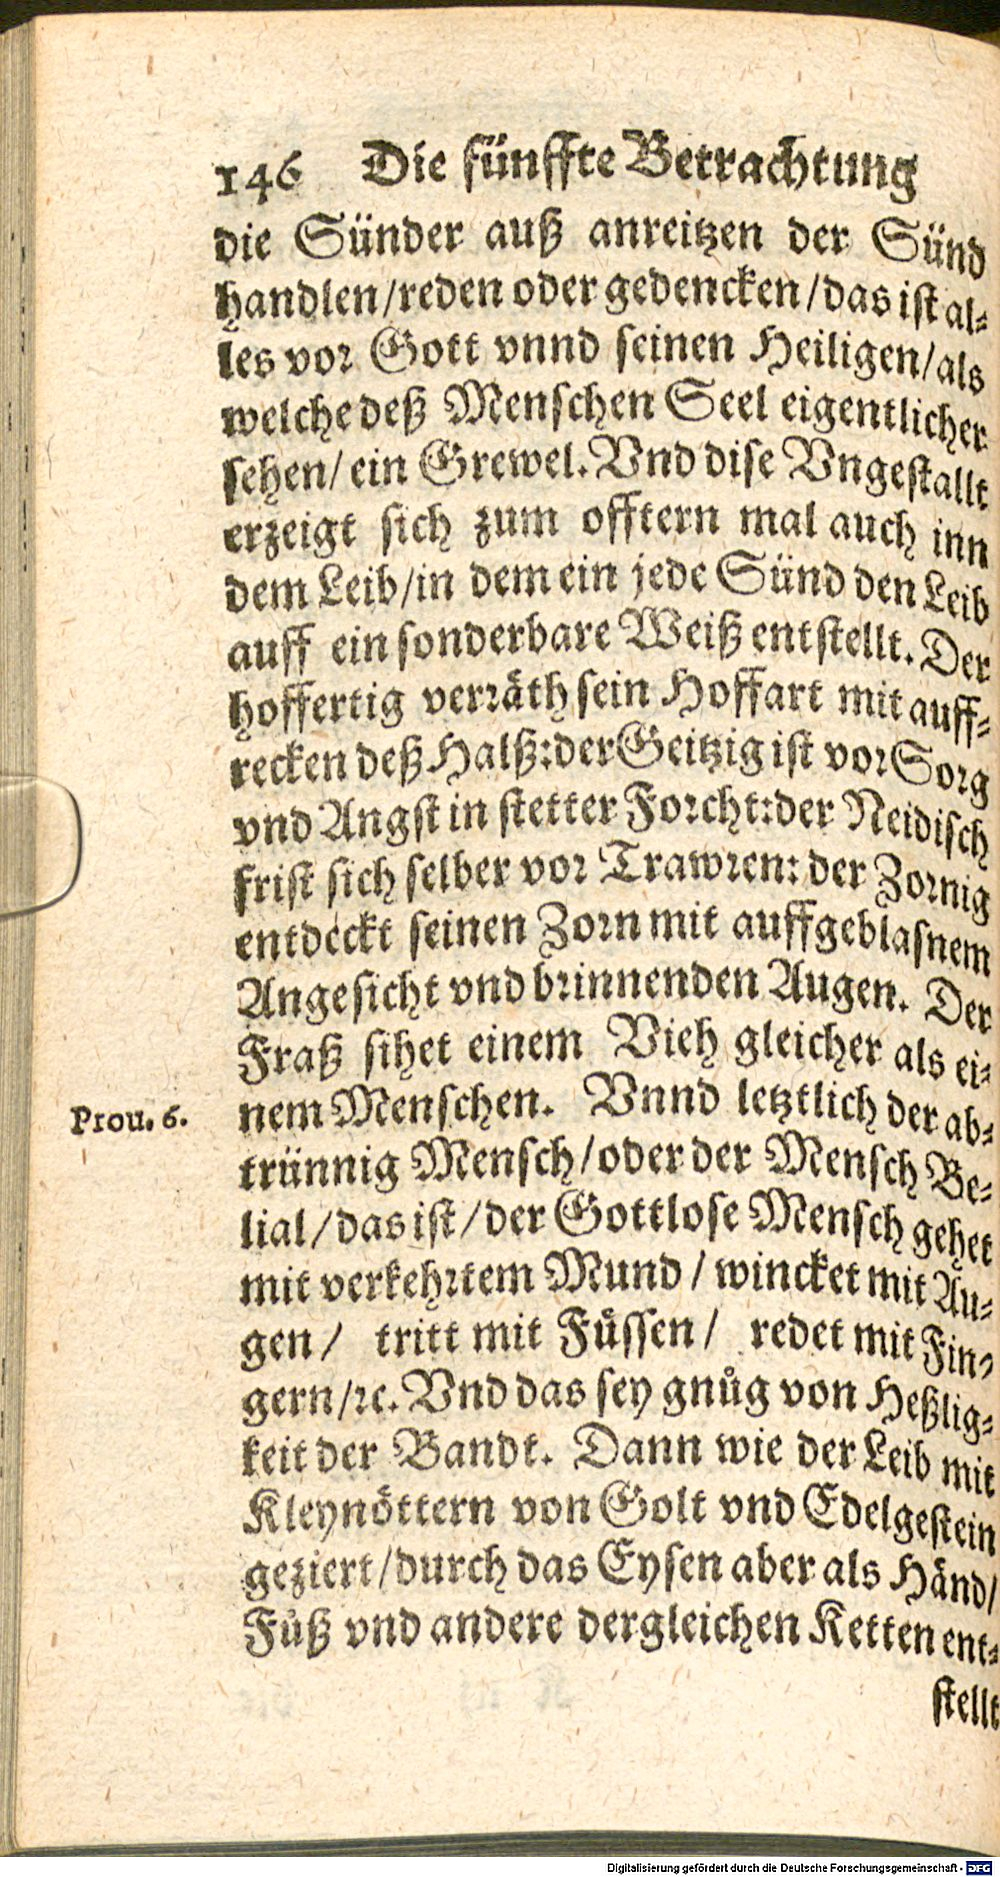 146 Die fünffte Betrachtung
die Sünder auß anreitzen der Sünd
handlen/reden oder gedencken/das ist al-
les vor Gott vnnd seinen Heiligen/als
welche deß Menschen Seel eigentlicher
sehen/ ein Grewel. Vnd dise Vngestallt
erzeigt sich zum offtern mal auch inn
dem Leib/in dem ein jede Sünd den Leib
auff ein sonderbare Weiß entstellt. Der
hoffertig verräth sein Hoffart mit auff-
recken deß Halß: der Geitzig ist vor Sorg
vnd Angst in stetter Forcht: der Neidisch
frist sich selber vor Trawren: der Zornig
entdeckt seinen Zorn mit auffgeblasnem
Angesicht vnd brinnenden Augen. Der
Fraß sihet einem Vieh gleicher als ei-
Prou. 6.
nem Menschen. Vnnd letztlich der ab-
trünnig Mensch/oder der Mensch Be-
lial/das ist/der Gottlose Mensch gehet
mit verkehrtem Mund/ wincket mit Au-
gen/ tritt mit Füssen/ redet mit Fin-
gern/ꝛc. Vnd das sey gnůg von Heßlig-
keit der Bandt. Dann wie der Leib mit
Kleynöttern von Golt vnd Edelgestein
geziert/durch das Eysen aber als Händ/
Fůß vnd andere dergleichen Ketten ent-
stellt
Digitalisierung gefördert durch die Deutsche Forschungsgemeinschaft - DFG